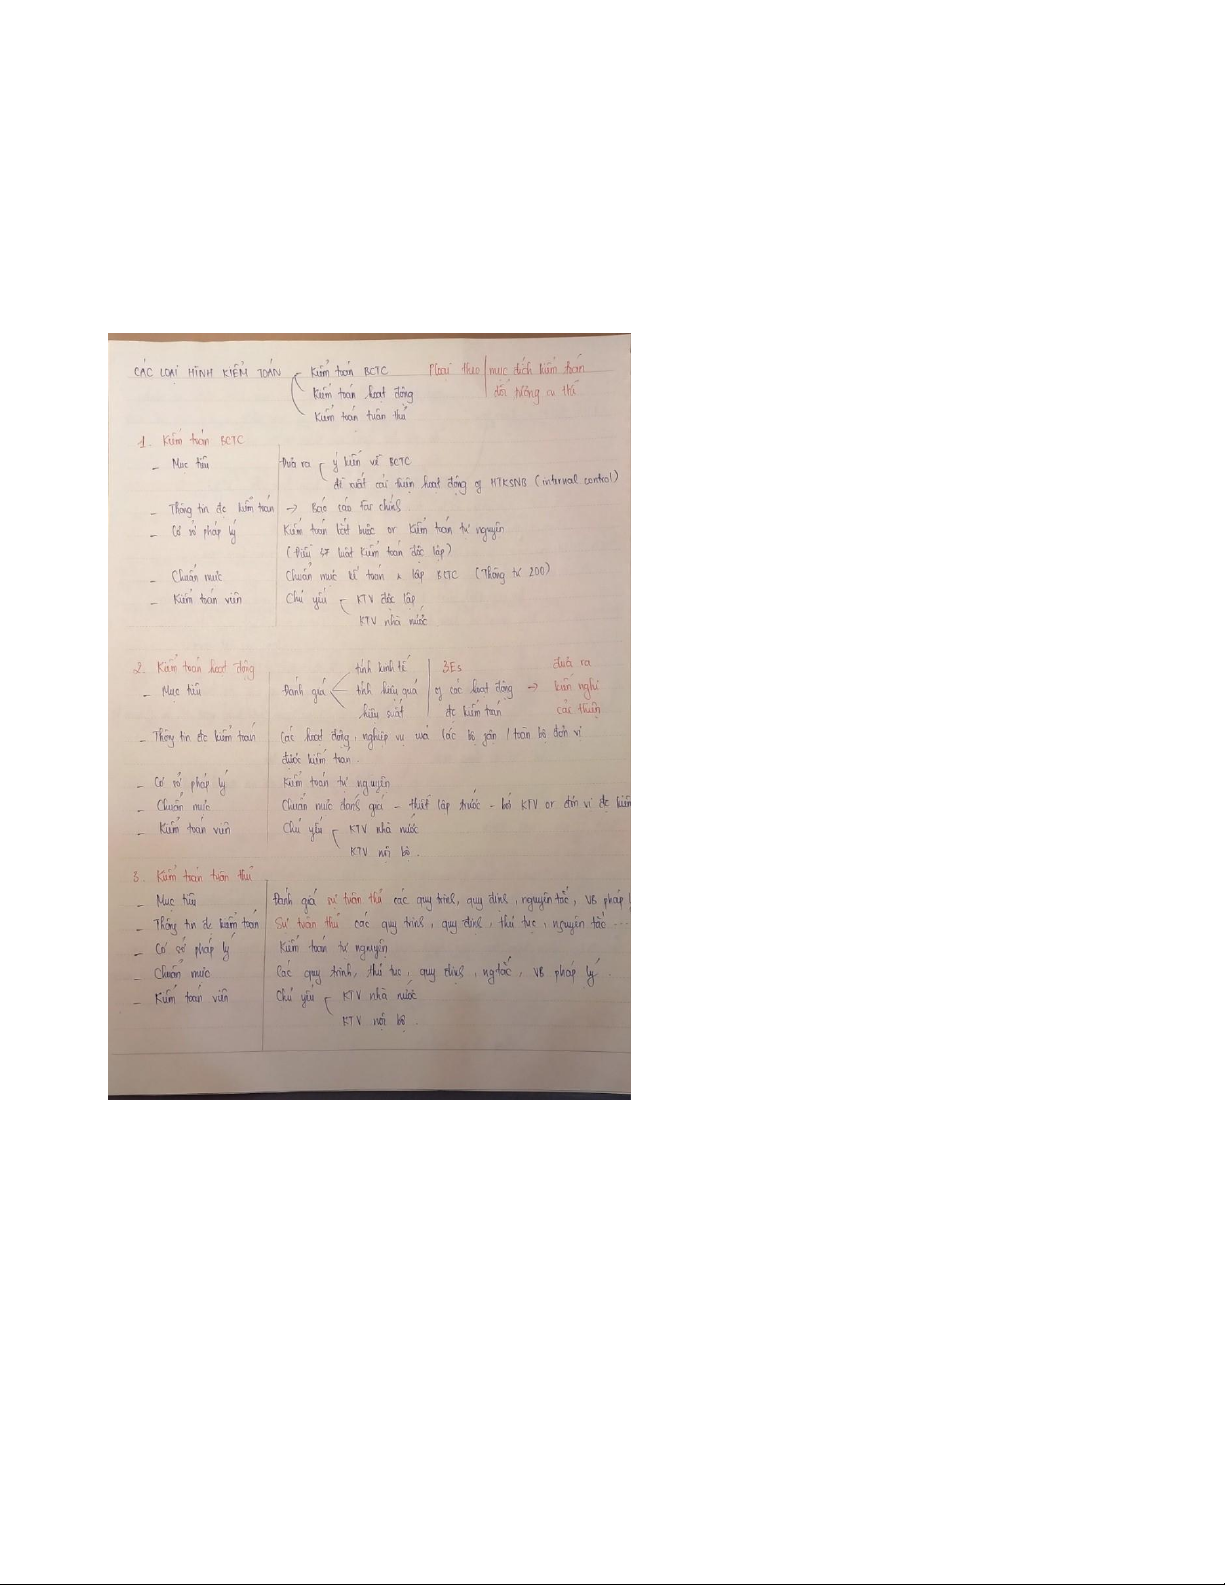 CÁC LOẠI HÌNH KIỂM TOÁN Kiểm toán BCTC Ploại theo mục đích kiểm toán
Kiểm toán hoạt động đối tượng cụ thể
Kiểm toán tuân thủ
1. Kiểm toán BCTC
- Mục tiêu Đưa ra ý kiến về BCTC
đề xuất cải thiện hoạt động of HTKSNB (internal control)
- Thông tin đc kiểm toán → Báo cáo tài chính
- Cơ sở pháp lý Kiểm toán bắt buộc or kiểm toán tự nguyện
(Điều 37 luật kiểm toán độc lập)
- Chuẩn mực Chuẩn mực kế toán & lập BCTC (Thông tư 200)
- Kiểm toán viên Chủ yếu KTV độc lập
KTV nhà nước
2. Kiểm toán hoạt động tính kinh tế 3Es đưa ra
- Mục tiêu Đánh giá tính hiệu quả of các hoạt động → kiến nghị
hiệu suất đc kiểm toán cải thiện
- Thông tin đc kiểm toán Các hoạt động, nghiệp vụ của các bộ phận / toàn bộ đơn vị
được kiểm toán.
- Cơ sở pháp lý Kiểm toán tự nguyện
- Chuẩn mực Chuẩn mực đánh giá - thiết lập trước - bởi KTV or đơn vị đc kiểm
- Kiểm toán viên Chủ yếu KTV nhà nước
KTV nội bộ.
3. Kiểm toán tuân thủ
- Mục tiêu Đánh giá sự tuân thủ các quy trình, quy định, nguyên tắc, VB pháp
- Thông tin đc kiểm toán Sự tuân thủ các quy trình, quy định, thủ tục, nguyên tắc ...
- Cơ sở pháp lý Kiểm toán tự nguyện
- Chuẩn mực Các quy trình, thủ tục, quy định, ng tắc, VB pháp lý.
- Kiểm toán viên Chủ yếu KTV nhà nước
KTV nội bộ.